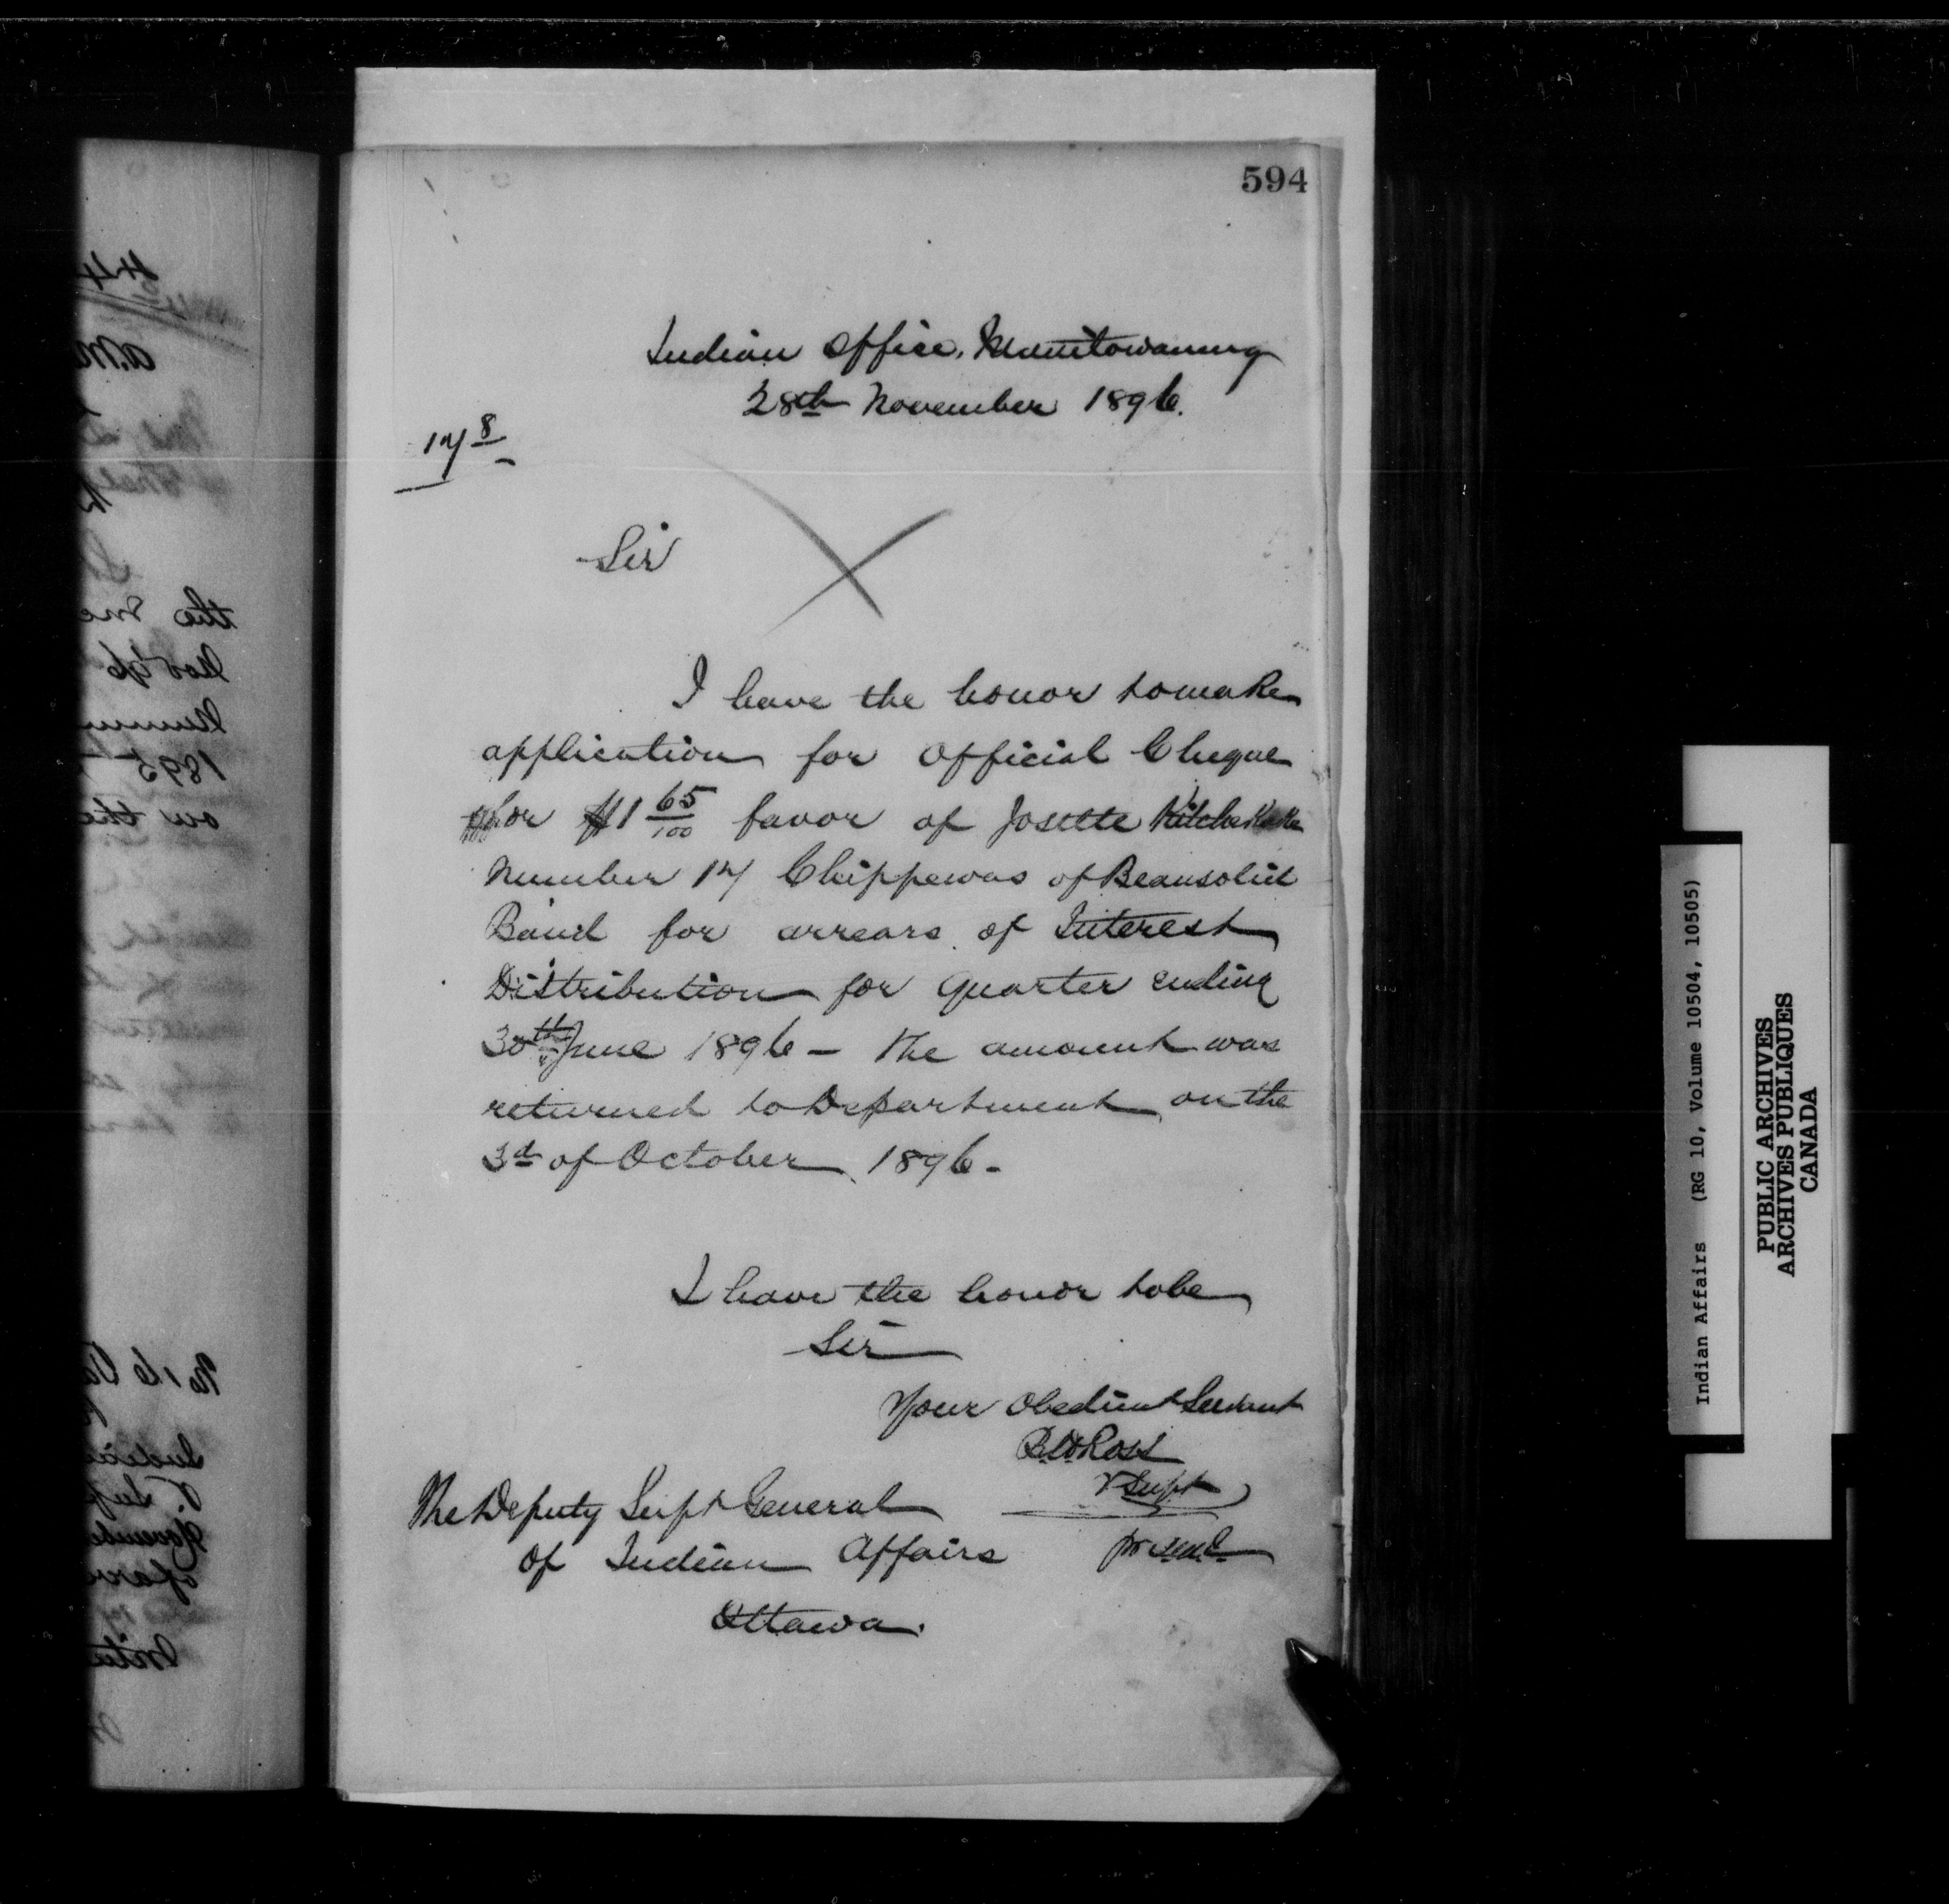 594
Indian Office, Manitowaning
28th November 1896.
Sir
I have the honor to make
application for Official Cheque
for $1 65/100 favor of Josette Kitchekeke
Number 14 Chippewas of Beausoliel
Band for arrears of Interest
Distribution for quarter ending
30th June 1896 – The amount was
returned to Department on the
3d of October 1896 –
I have the honor to be
Sir
Your Obedient Servant
B W Ross
V Supt
The Deputy Supt General
Of Indian Affairs
Ottawa.
Indian Affairs (RG 10, Volume 10504, 10505)
PUBLIC ARCHIVES
ARCHIVES PUBLIQUES
CANADA